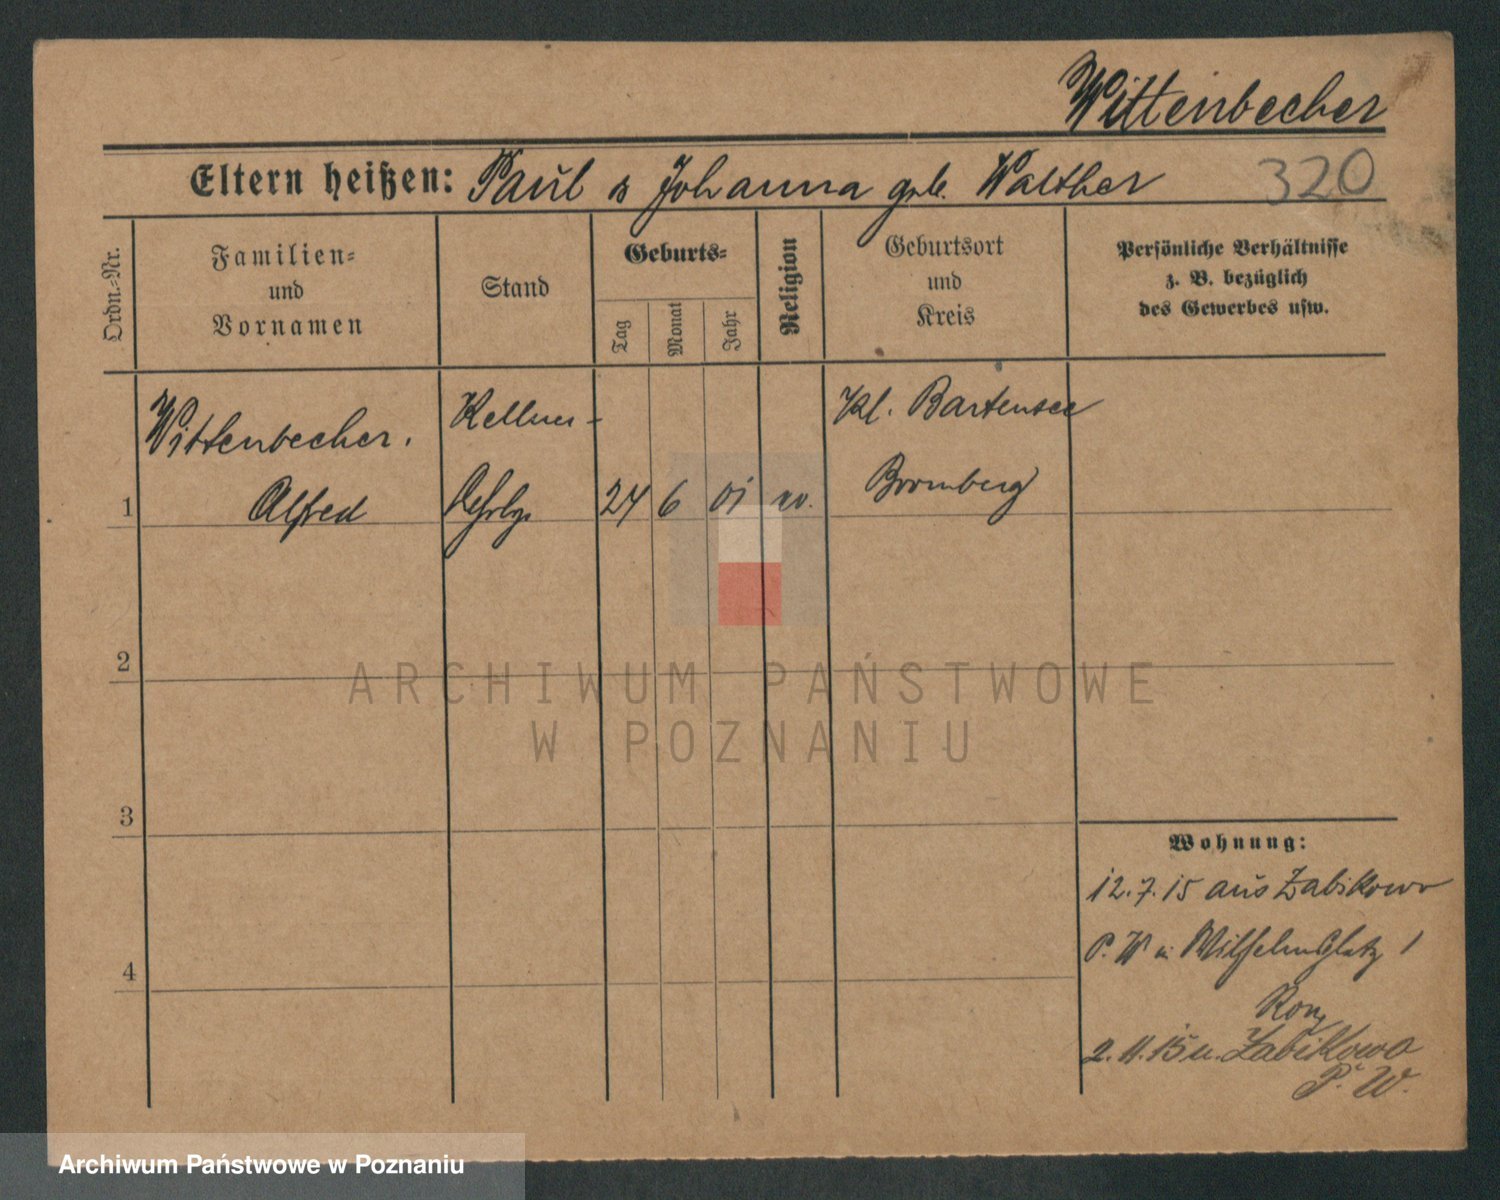 Wittenbecher
Eltern heißen: Paul & Johanna geb. Walther
320
Ordn.-Nr.
Familien-
und
Vornamen
Stand
Geburts-
Tag
Monat
Jahr
Religion
Geburtsort
und
Kreis
Persönliche Verhältnisse
z. B. bezüglich
des Gewerbes usw.
1
Wittenbecher,
Alfred
Kellner-
Lehrlg.
24 6 01 ev.
Kl. Bartensee
Bromberg
2
3
4
Wohnung:
12.7.15 aus Zabikowo
P. W n. Wilhelmplatz 1
2.11.15 n. Zabikowo
P. W.
ARCHIWUM PAŃSTWOWE
W POZNANIU
Archiwum Państwowe w Poznaniu